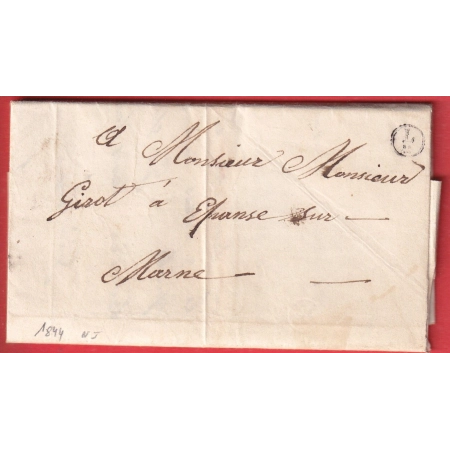 a Monsieur Monsieur
Girot à Epense sur
Marne
1844 NJ